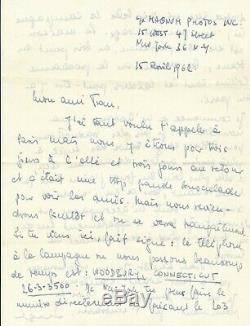 c/o MAGNUM PHOTOS INC.
15 WEST 47 Street
New York 36 N.Y.
15 avril 1962
Mon ami Tom,
J'ai tant voulu t'appeler à
Paris mais nous y étions que trois
jours à l'allé et trois jours au retour
et c'était une trop grande bousculade
pour voir les amis. Mais nous revien-
drons bientôt et on se verra tranquillement
Si tu viens ici, fais signe : le téléphone
à la campagne où nous passons beaucoup
de temps est : WOODBURY, CONNECTICUT
26-3-3500. Je
numéro directement en faisant le 203